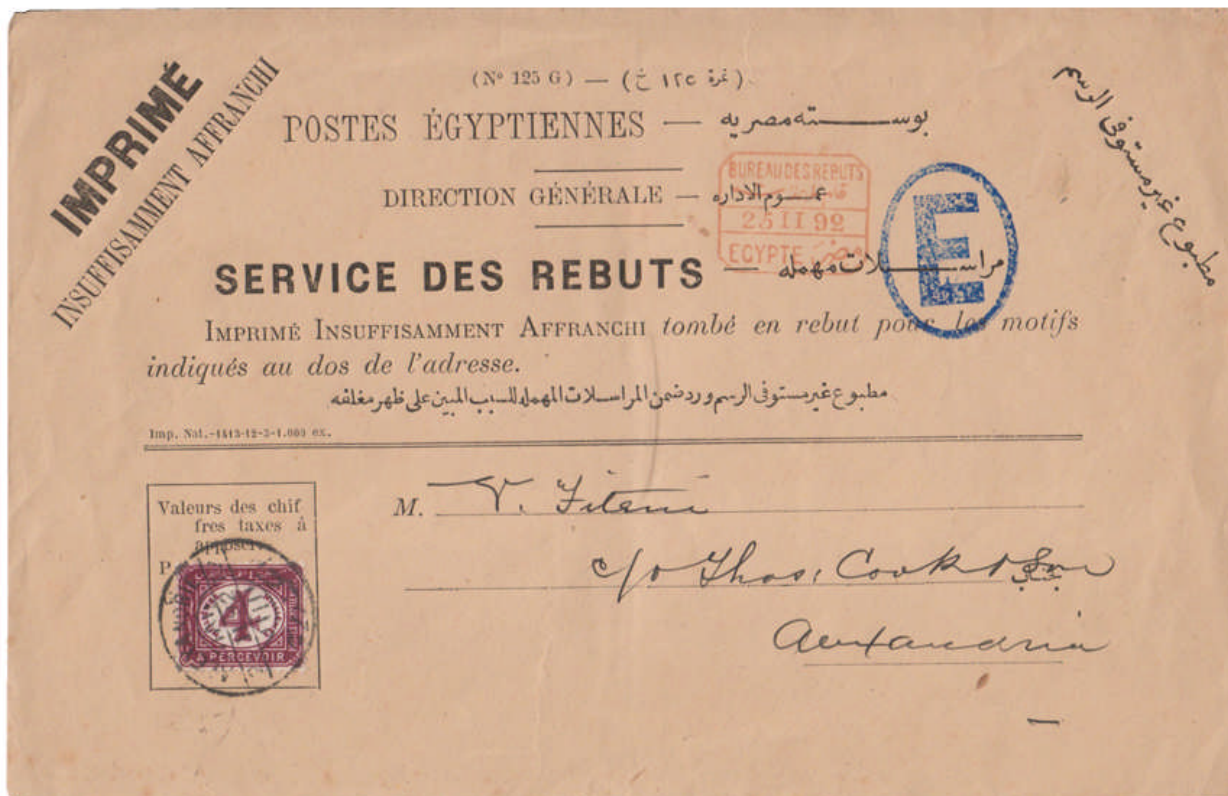 IMPRIMÉ
INSUFFISAMMENT AFFRANCHI
مطبوع غير مستوفى الرسم
(Nº 125 G) — (نمرة ١٢٥ خ)
POSTES ÉGYPTIENNES — بوسته مصريه
DIRECTION GÉNÉRALE — عموم الاداره
BUREAU DES REBUTS
25 II 92
EGYPTE مصر
E
SERVICE DES REBUTS — مراسلات مهمله
IMPRIMÉ INSUFFISAMMENT AFFRANCHI tombé en rebut pour les motifs
indiqués au dos de l'adresse.
مطبوع غير مستوفى الرسم ورد ضمن المراسلات المهمله للسبب المبين على ظهر مغلفه
Imp. Nat.-1413-12-3-1.000 ex.
Valeurs des chif
fres taxes à
apposer
P
4
A PERCEVOIR
M. V. Fiteni
c/o Thos. Cook & Son
Alexandria